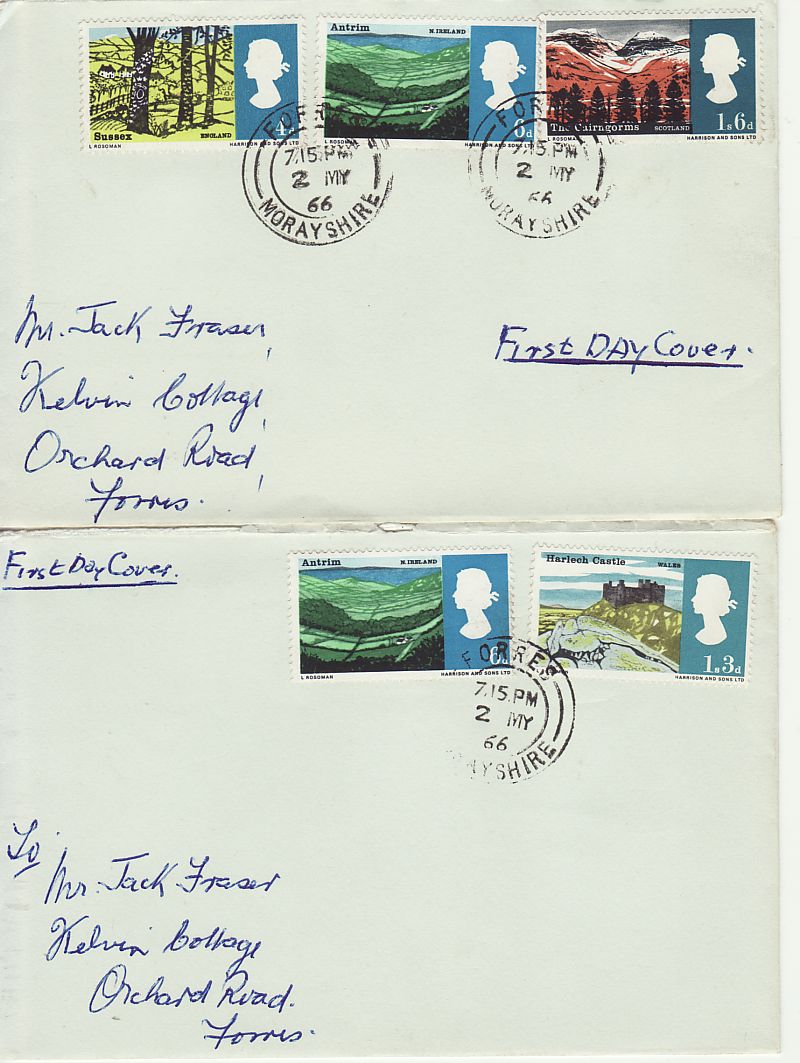 Sussex
ENGLAND
4d
L ROSOMAN
HARRISON AND SONS LTD
Antrim
N. IRELAND
6d
L ROSOMAN
HARRISON AND SONS LTD
The Cairngorms
SCOTLAND
1s6d
HARRISON AND SONS LTD
FORRES
7.15.PM
2 MY
66
MORAYSHIRE
FORRES
7.15.PM
2 MY
66
MORAYSHIRE
Mr. Jack Fraser,
Kelvin Cottage,
Orchard Road,
Forres.
First DAY Cover.
First Day Cover.
Antrim
N. IRELAND
6d
L ROSOMAN
HARRISON AND SONS LTD
Harlech Castle
WALES
1s3d
HARRISON AND SONS LTD
FORRES
7.15.PM
2 MY
66
MORAYSHIRE
To
Mr. Jack Fraser
Kelvin Cottage
Orchard Road.
Forres.